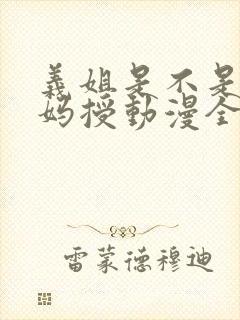 義姐是不是
妈授動漫全
雷蒙德穆迪